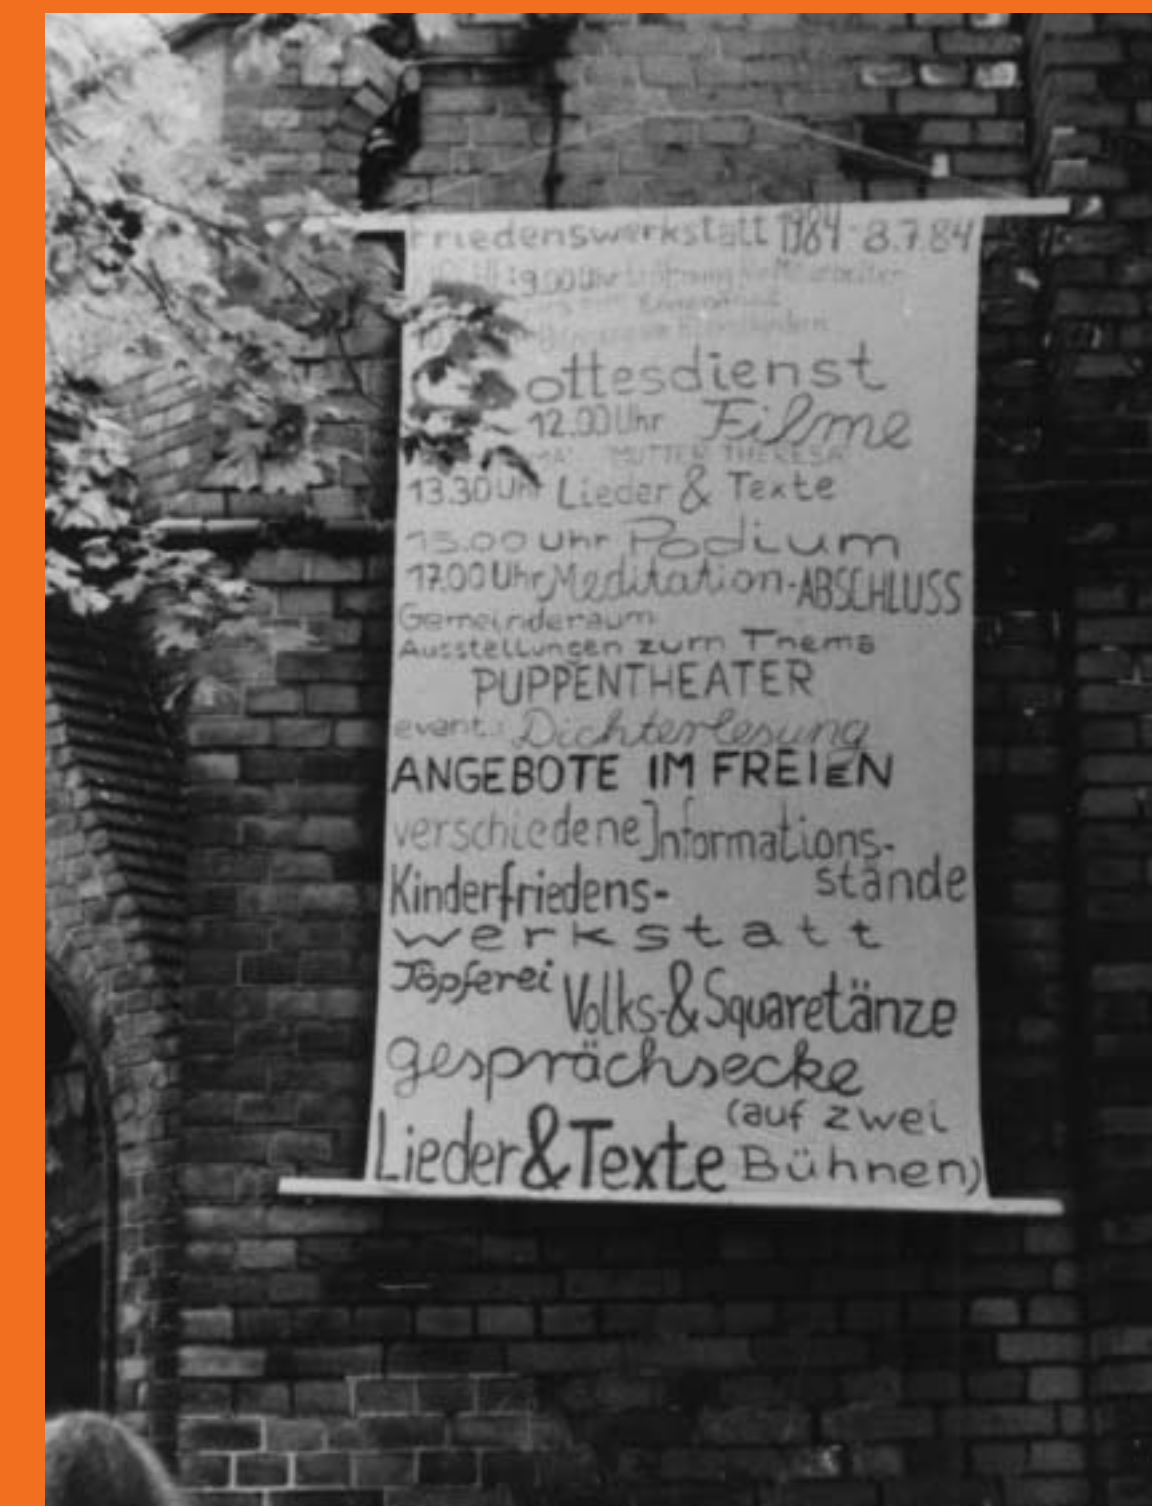 Friedenswerkstatt 1984 - 8.7.84
9.00 Uhr Eröffnung
Gottesdienst
12.00 Uhr Filme
MUTTER THERESA
13.30 Uhr Lieder & Texte
15.00 Uhr Podium
17.00 Uhr Meditation - ABSCHLUSS
Gemeinderaum
Ausstellungen zum Thema
PUPPENTHEATER
event.: Dichterlesung
ANGEBOTE IM FREIEN
verschiedene Informations-
stände
Kinderfriedens-
werkstatt
Töpferei Volks-&Squaretänze
gesprächsecke
Lieder&Texte (auf zwei
Bühnen)